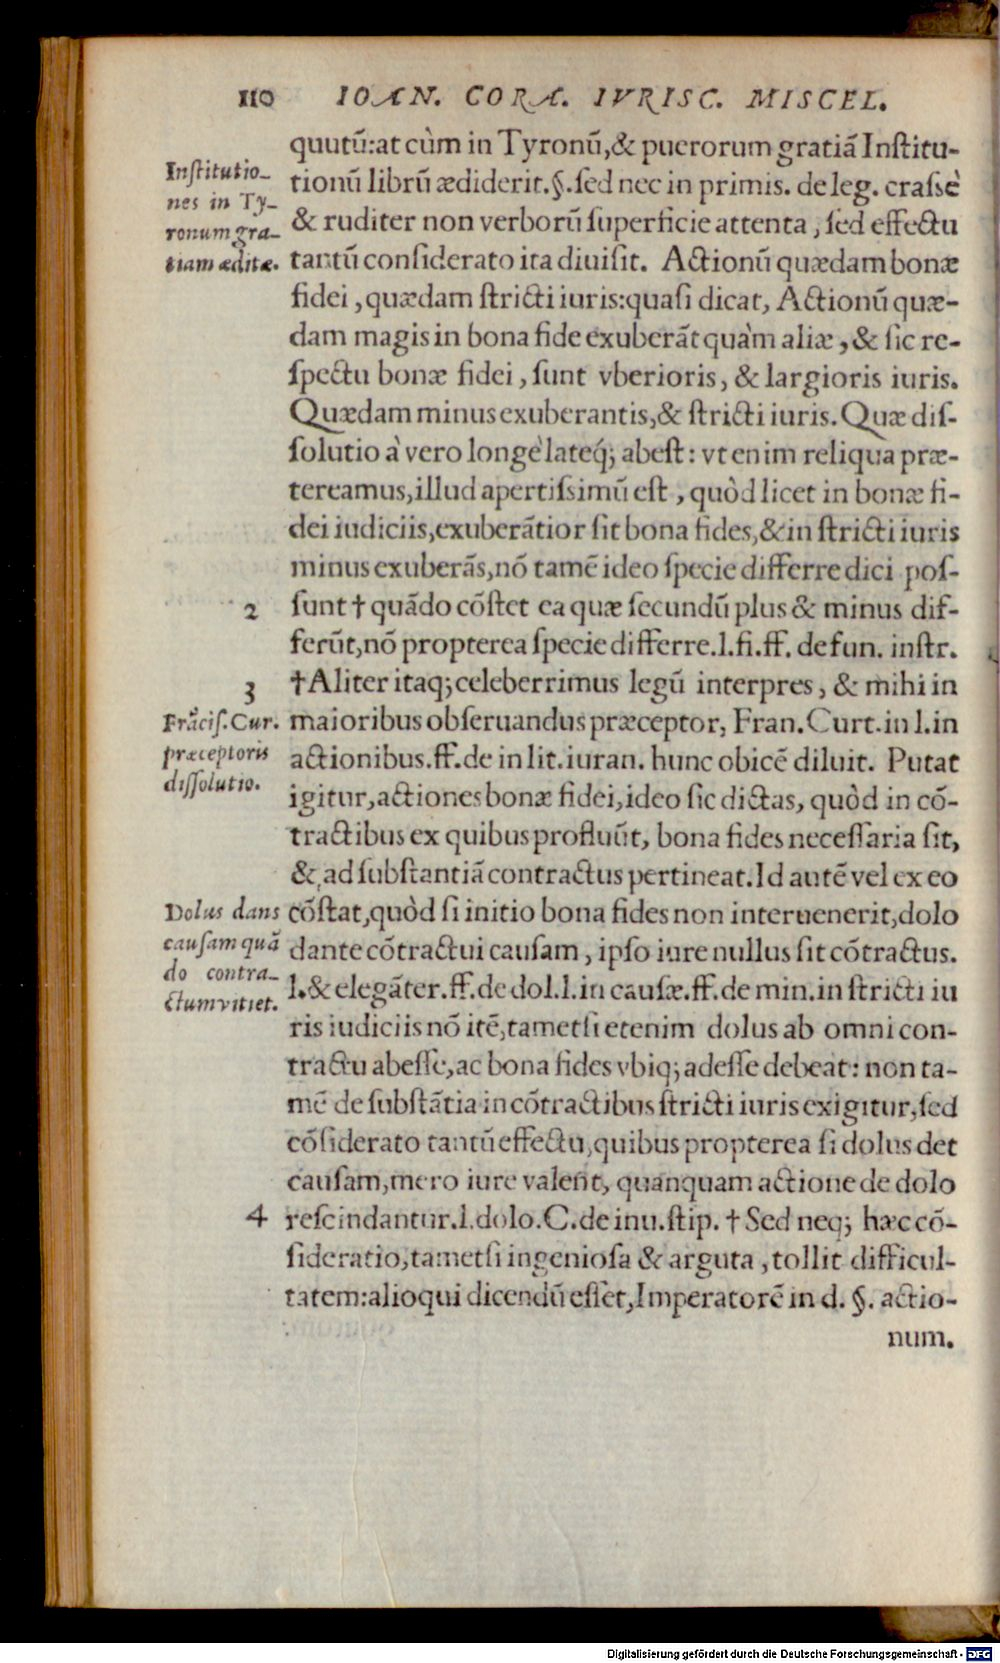 110 IOAN. CORA. IVRISC. MISCEL.
quutū:at cùm in Tyronū,& puerorum gratiā Institu-
tionū librū ædiderit.§.sed nec in primis. de leg. crassè
& ruditer non verborū superficie attenta, sed effectu
tantū considerato ita diuisit. Actionū quædam bonæ
fidei, quædam stricti iuris:quasi dicat, Actionū quæ-
dam magis in bona fide exuberāt quàm aliæ, & sic re-
spectu bonæ fidei, sunt vberioris, & largioris iuris.
Quædam minus exuberantis,& stricti iuris. Quæ dis-
solutio à vero longè lateq; abest: vt enim reliqua præ-
tereamus,illud apertissimū est, quòd licet in bonæ fi-
dei iudiciis,exuberātior sit bona fides,& in stricti iuris
minus exuberās,nō tamē ideo specie differre dici pos-
2 sunt † quādo cōstet ea quæ secundū plus & minus dif-
ferūt,nō propterea specie differre.l.fi.ff. de fun. instr.
3 †Aliter itaq; celeberrimus legū interpres, & mihi in
maioribus obseruandus præceptor, Fran. Curt. in l. in
actionibus.ff.de in lit. iuran. hunc obicē diluit. Putat
igitur,actiones bonæ fidei,ideo sic dictas, quòd in cō-
tractibus ex quibus profluūt, bona fides necessaria sit,
& ad substantiā contractus pertineat. Id autē vel ex eo
cōstat,quòd si initio bona fides non interuenerit,dolo
dante cōtractui causam, ipso iure nullus sit cōtractus.
l.& elegāter.ff.de dol.l.in causæ.ff.de min.in stricti iu
ris iudiciis nō itē,tametsi etenim dolus ab omni con-
tractu abesse,ac bona fides vbiq; adesse debeat: non ta-
mē de substātia in cōtractibus stricti iuris exigitur,sed
cōsiderato tantū effectu,quibus propterea si dolus det
causam,mero iure valent, quanquam actione de dolo
4 rescindantur.l.dolo.C.de inu.stip. † Sed neq; hæc cō-
sideratio,tametsi ingeniosa & arguta, tollit difficul-
tatem:alioqui dicendū esset,Imperatorē in d. §. actio-
num.
Institutio-
nes in Ty-
ronum gra-
tiam æditæ.
Frācis. Cur.
præceptoris
dissolutio.
Dolus dans
causam quā
do contra-
ctum vitiet.
Digitalisierung gefördert durch die Deutsche Forschungsgemeinschaft - DFG